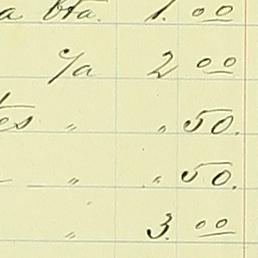 a bta. 1.00
c/a 2 00
es " " 50.
" " 50.
" 3.00